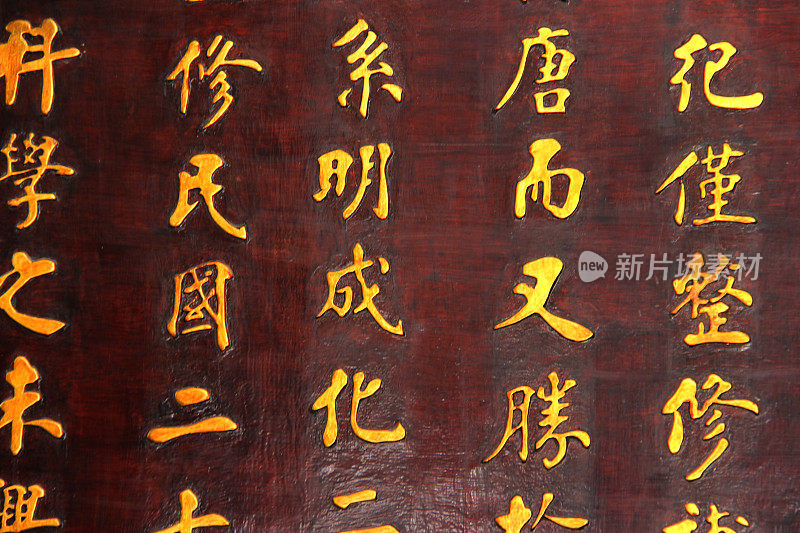 圮僅整修補
唐而又勝於
系明成化二
修民國二十
科學之未興
new 新片场